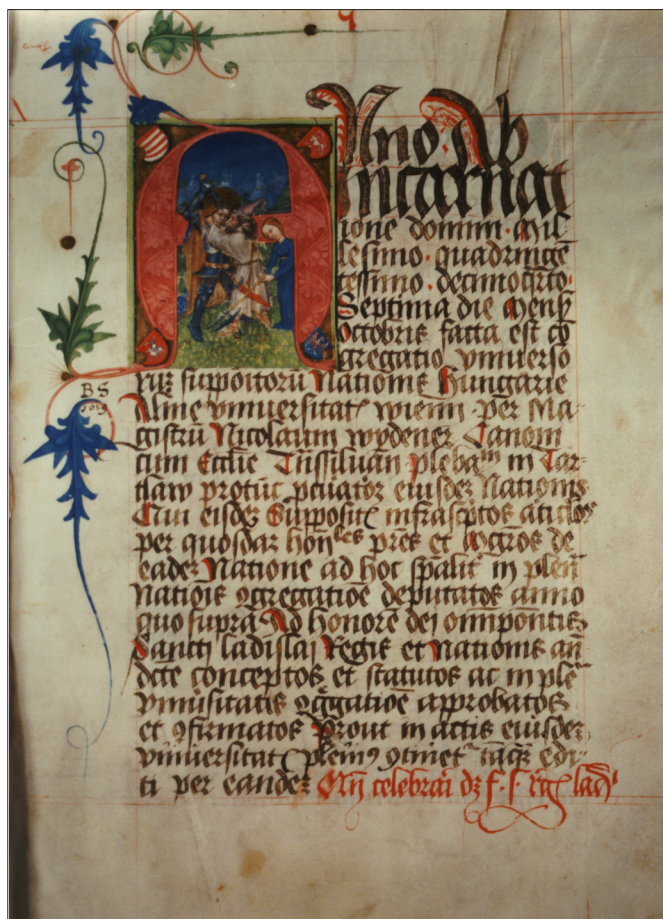 Anno Ab
incarnat
ione domini Mil
lesimo quadringē
tessimo decimoqrto
Septima die Mens
Octobris facta est cō
gregatio vniuerso
ruȝ suppoitorū Nationis Hungarie
BS
Alme vniuersitat wienn per Ma-
gistrū Nicolaum wydener Canoni
cum Ecclie Tnssiluan plebanm in Tar-
tlaw protūc eiusdeȝ Nationis
Qui eisdeȝ Supposit infrascptos
per quosdaȝ honles pres et Mgros de
eadeȝ Natione ad hoc spālit in plen
Natiois ꝯgregatioē deputatos anno
quo supra Ad honorē dei omnpontis
Sancti ladislai Regis et Nationis an
dcte conceptos et statutos ac in plē
vniusitatis ꝯggatioē approbatos
et ꝯfirmatos Prout in actis eiusdeȝ
vniuersitat plenius ꝯtinet edi-
ti per eandeȝ